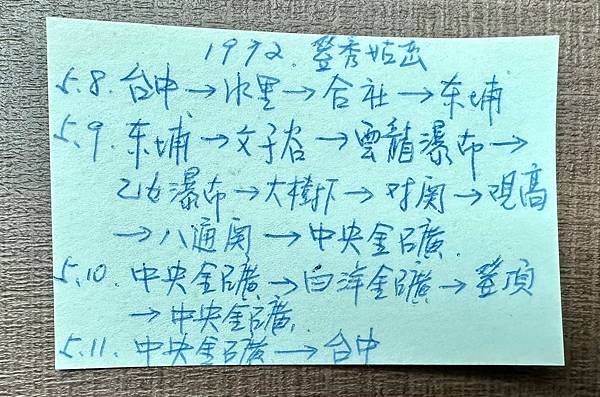 1992. 登秀姑峦
5.8. 台中→水里→合社→东埔
5.9. 东埔→父子谷→雲龍瀑布→
乙女瀑布→大樹下→对関→观高
→八通関→中央金礦.
5.10. 中央金礦→白洋金礦→登顶
→中央金礦.
5.11. 中央金礦→台中